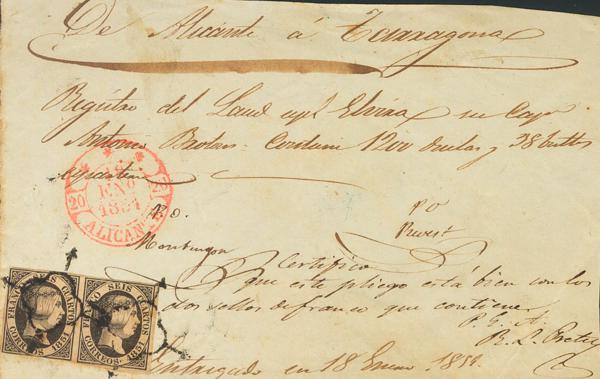 De Alicante á Tarragona
Registro del Laud español Elvira su Capn
Antonio : Contiene 1200 duelas y 38 bultos
esparteria
18
ENº
1851
20 20
ALICANTE
Bº.
po
Montengon
Certifico
que este pliego está bien con los
dos sellos de franco que contiene
P. E. A.
Entregado en 18 Enero 1851.
FRANCO SEIS CUARTOS
CORREOS. 1851
FRANCO SEIS CUARTOS
CORREOS. 1851